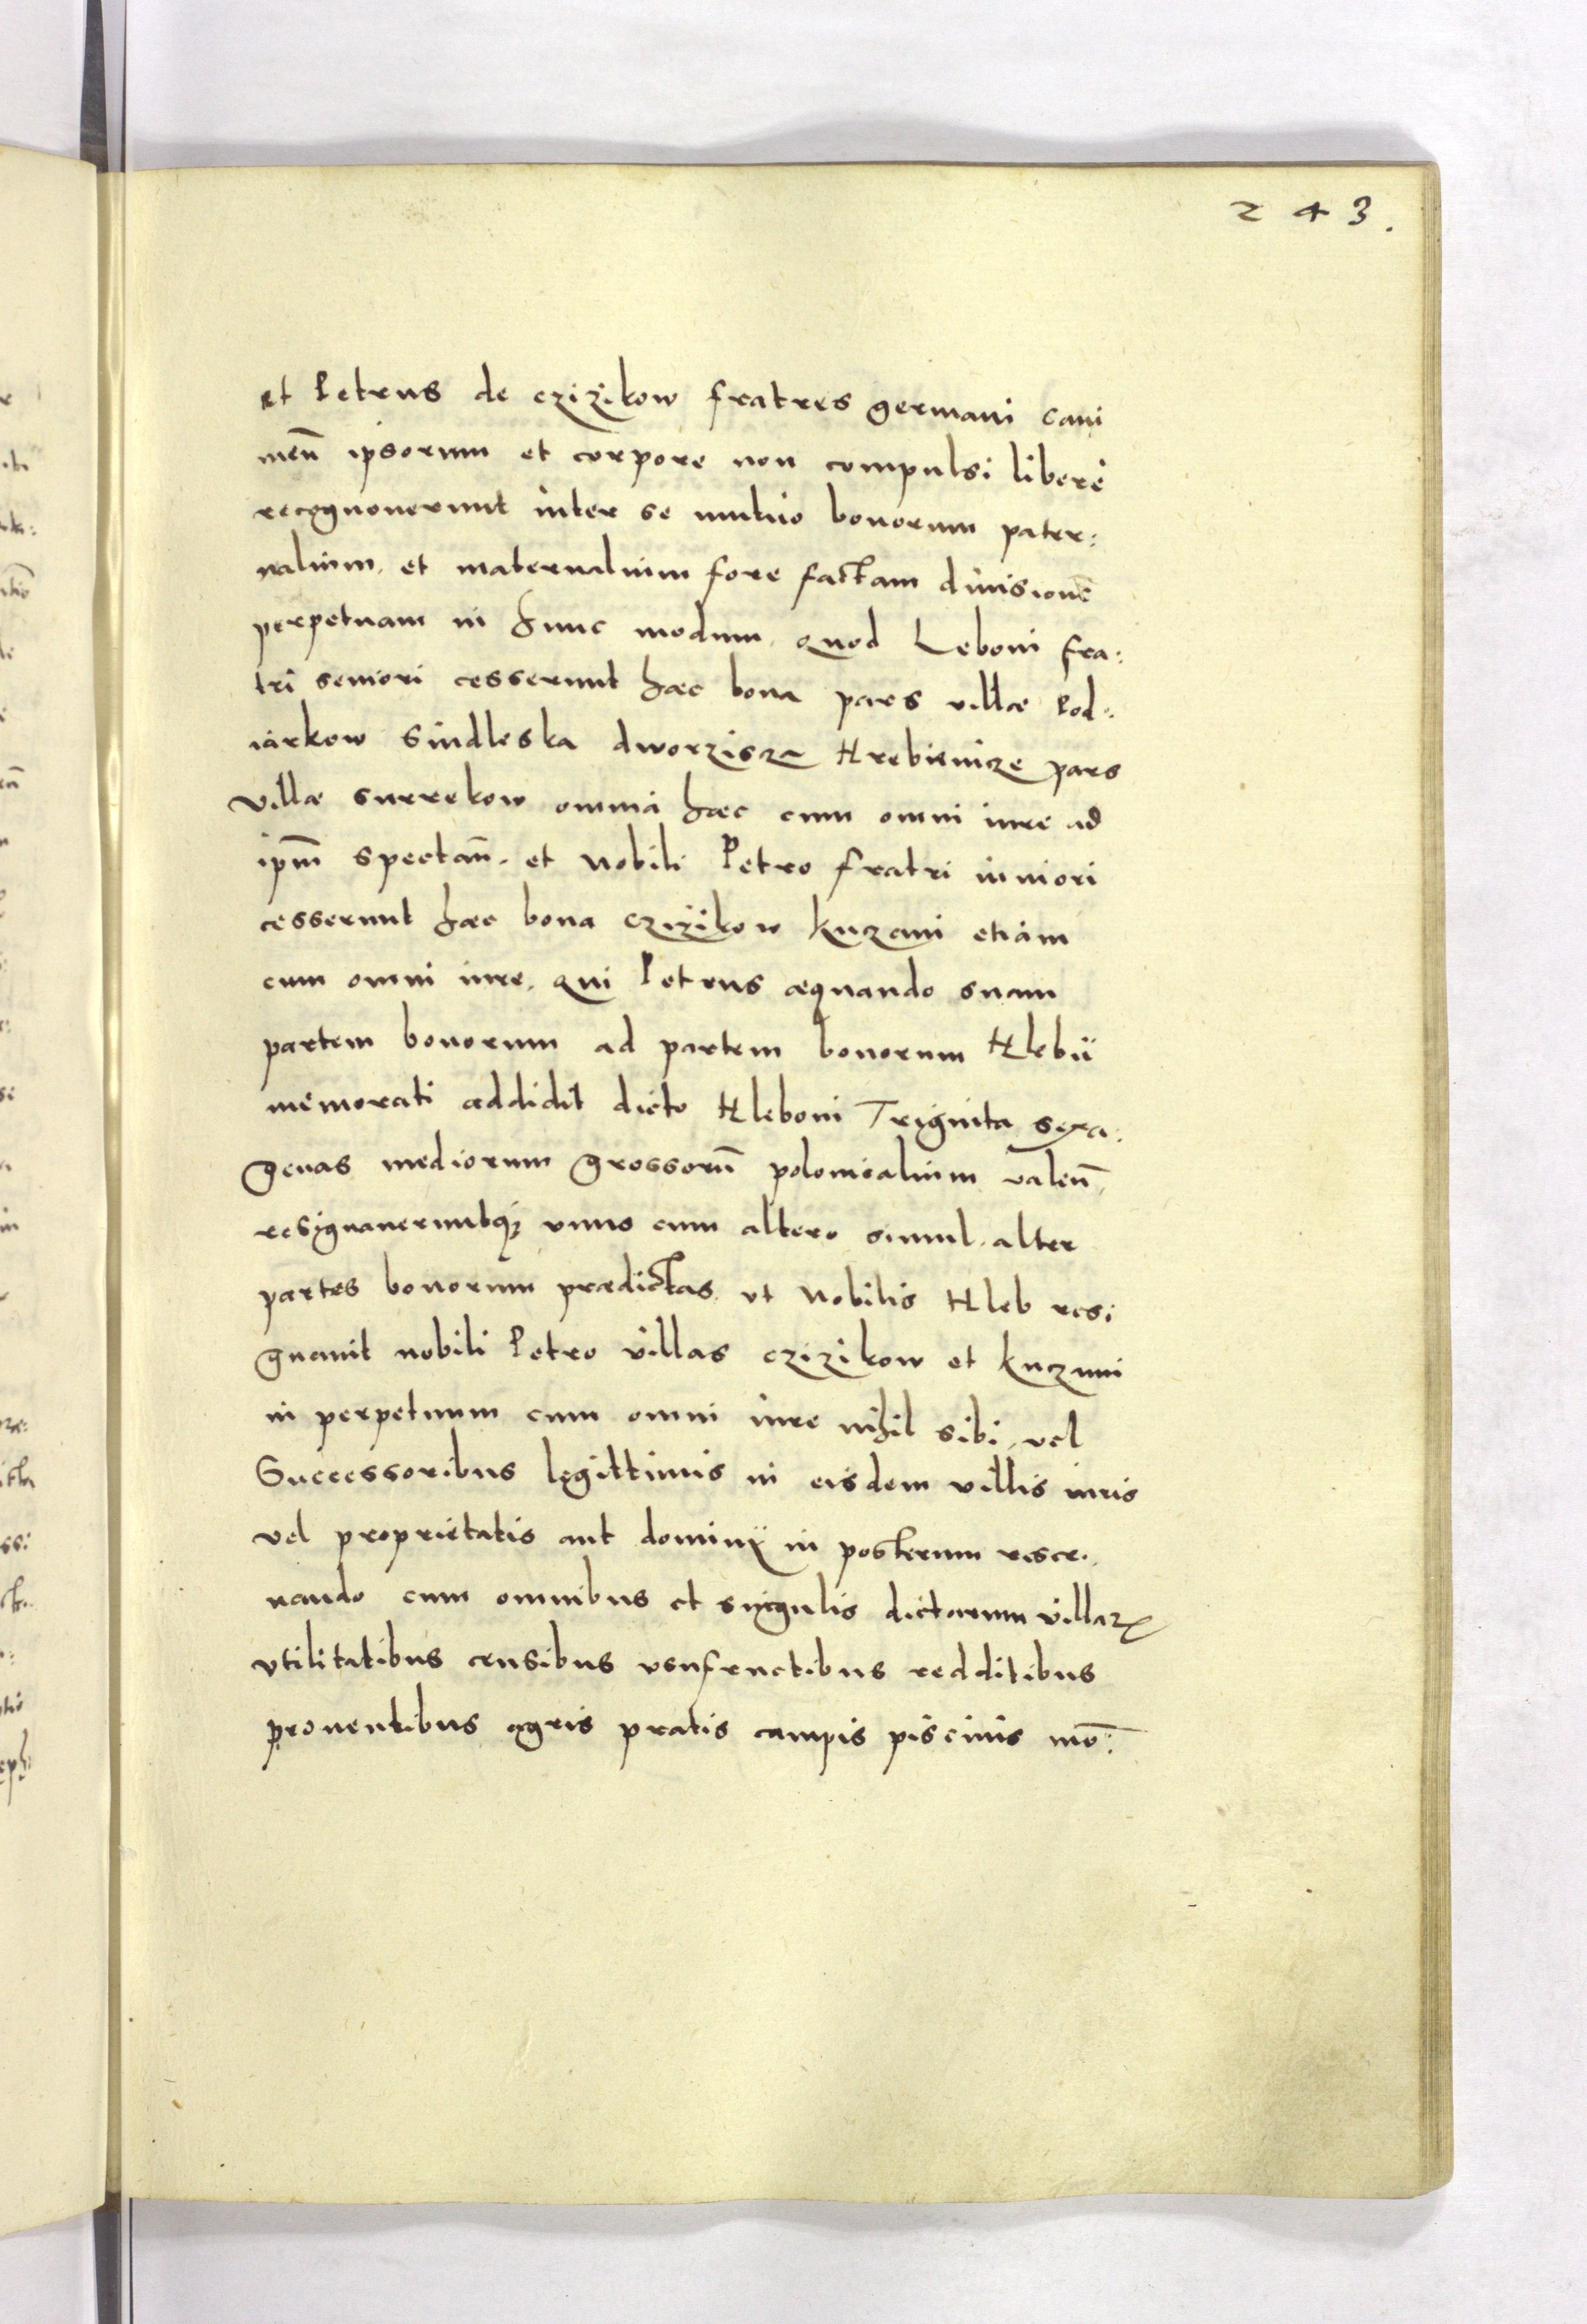 243.
et Petrus de Czizikow fratres germani sani
men̄ ipsorum et corpore non compulsi liberè
recognouerunt inter se mutuo bonorum pater:
nalium. et maternalium fore factam diuisionē
perpetuam in hunc modum. quod Leboni fra:
tri seniori cesserunt haec bona pars villae Pod:
iarkow Siedleska dworzisza Hrebienicze pars
villae Surrekow omnia haec cum omni iure ad
ipm̄ spectan̄. et Nobili Petro fratri iuniori
cesserunt haec bona Czizikow Kuczani etiam
cum omni iure. qui Petrus aequando suam
partem bonorum ad partem bonorum Hlebii
memorati addidit dicto Hleboni Triginta sexa:
genas mediorum grossorū polonicalium valen̄.
resignaueruntq; vnus cum altero simul. alter
partes bonorum praedictas. vt Nobilis Hleb resi
gnauit nobili Petro villas Czizikow et Kuczuni
in perpetuum cum omni iure nihil sibi, vel
Successoribus legittimis in eisdem villis iuris
vel proprietatis aut dominij in posterum reser:
uando cum omnibus et singulis dictarum villarꝝ
vtilitatibus censibus vsufructibus redditibus
prouentibus agris pratis campis piscinis mo: